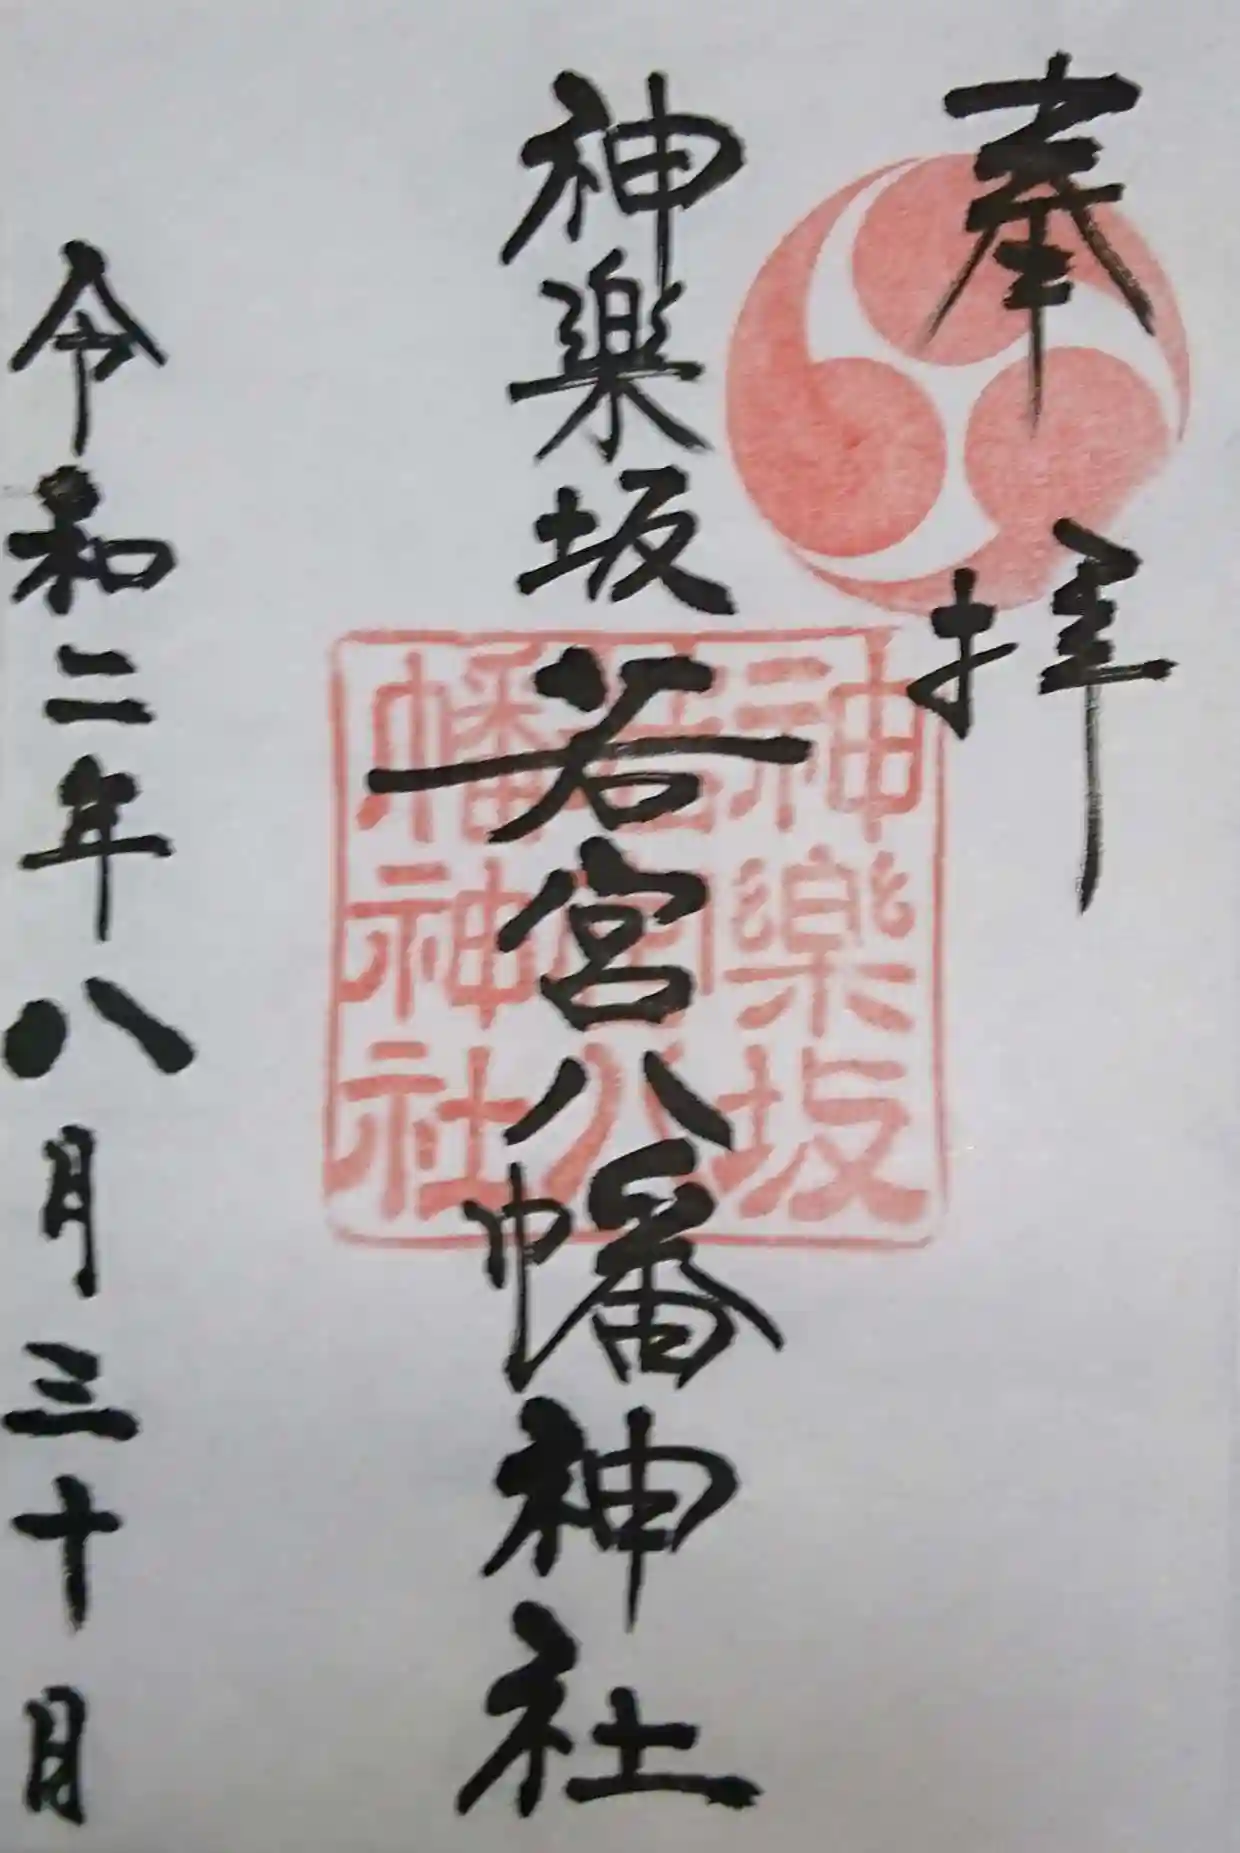 奉拝
神楽坂若宮八幡神社
神樂坂
若宮八
幡神社
令和二年八月三十日